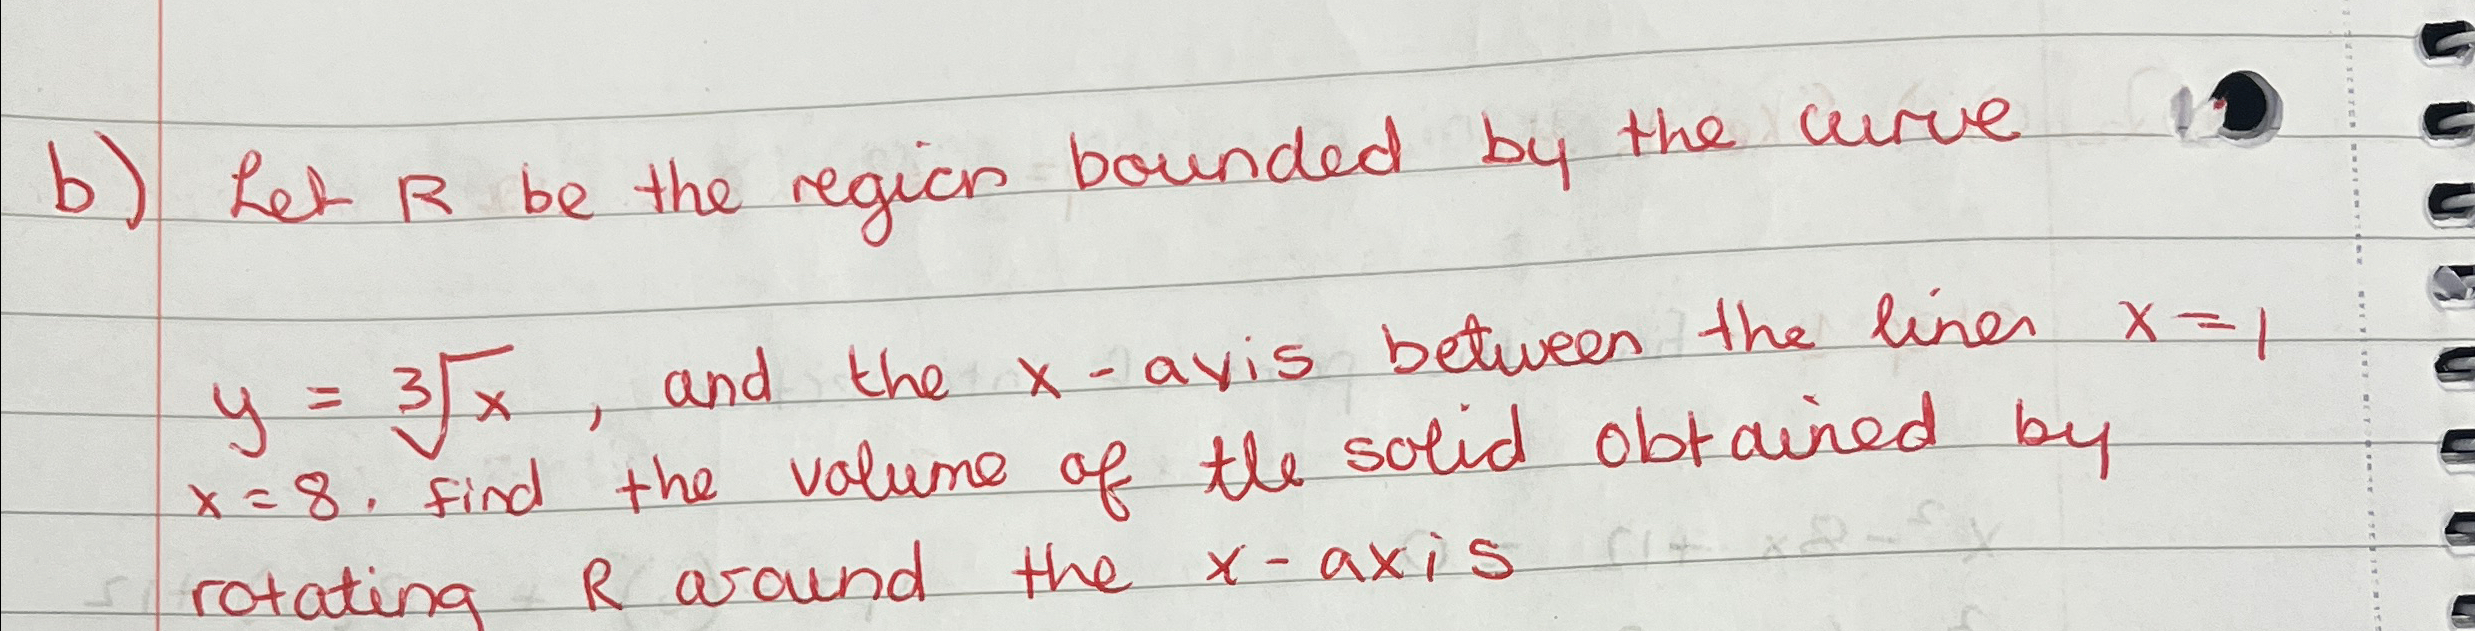 b) Let R be the region bounded by the curve
y = ∛x , and the x-axis between the lines x=1
x=8. find the volume of the solid obtained by
rotating R around the x-axis